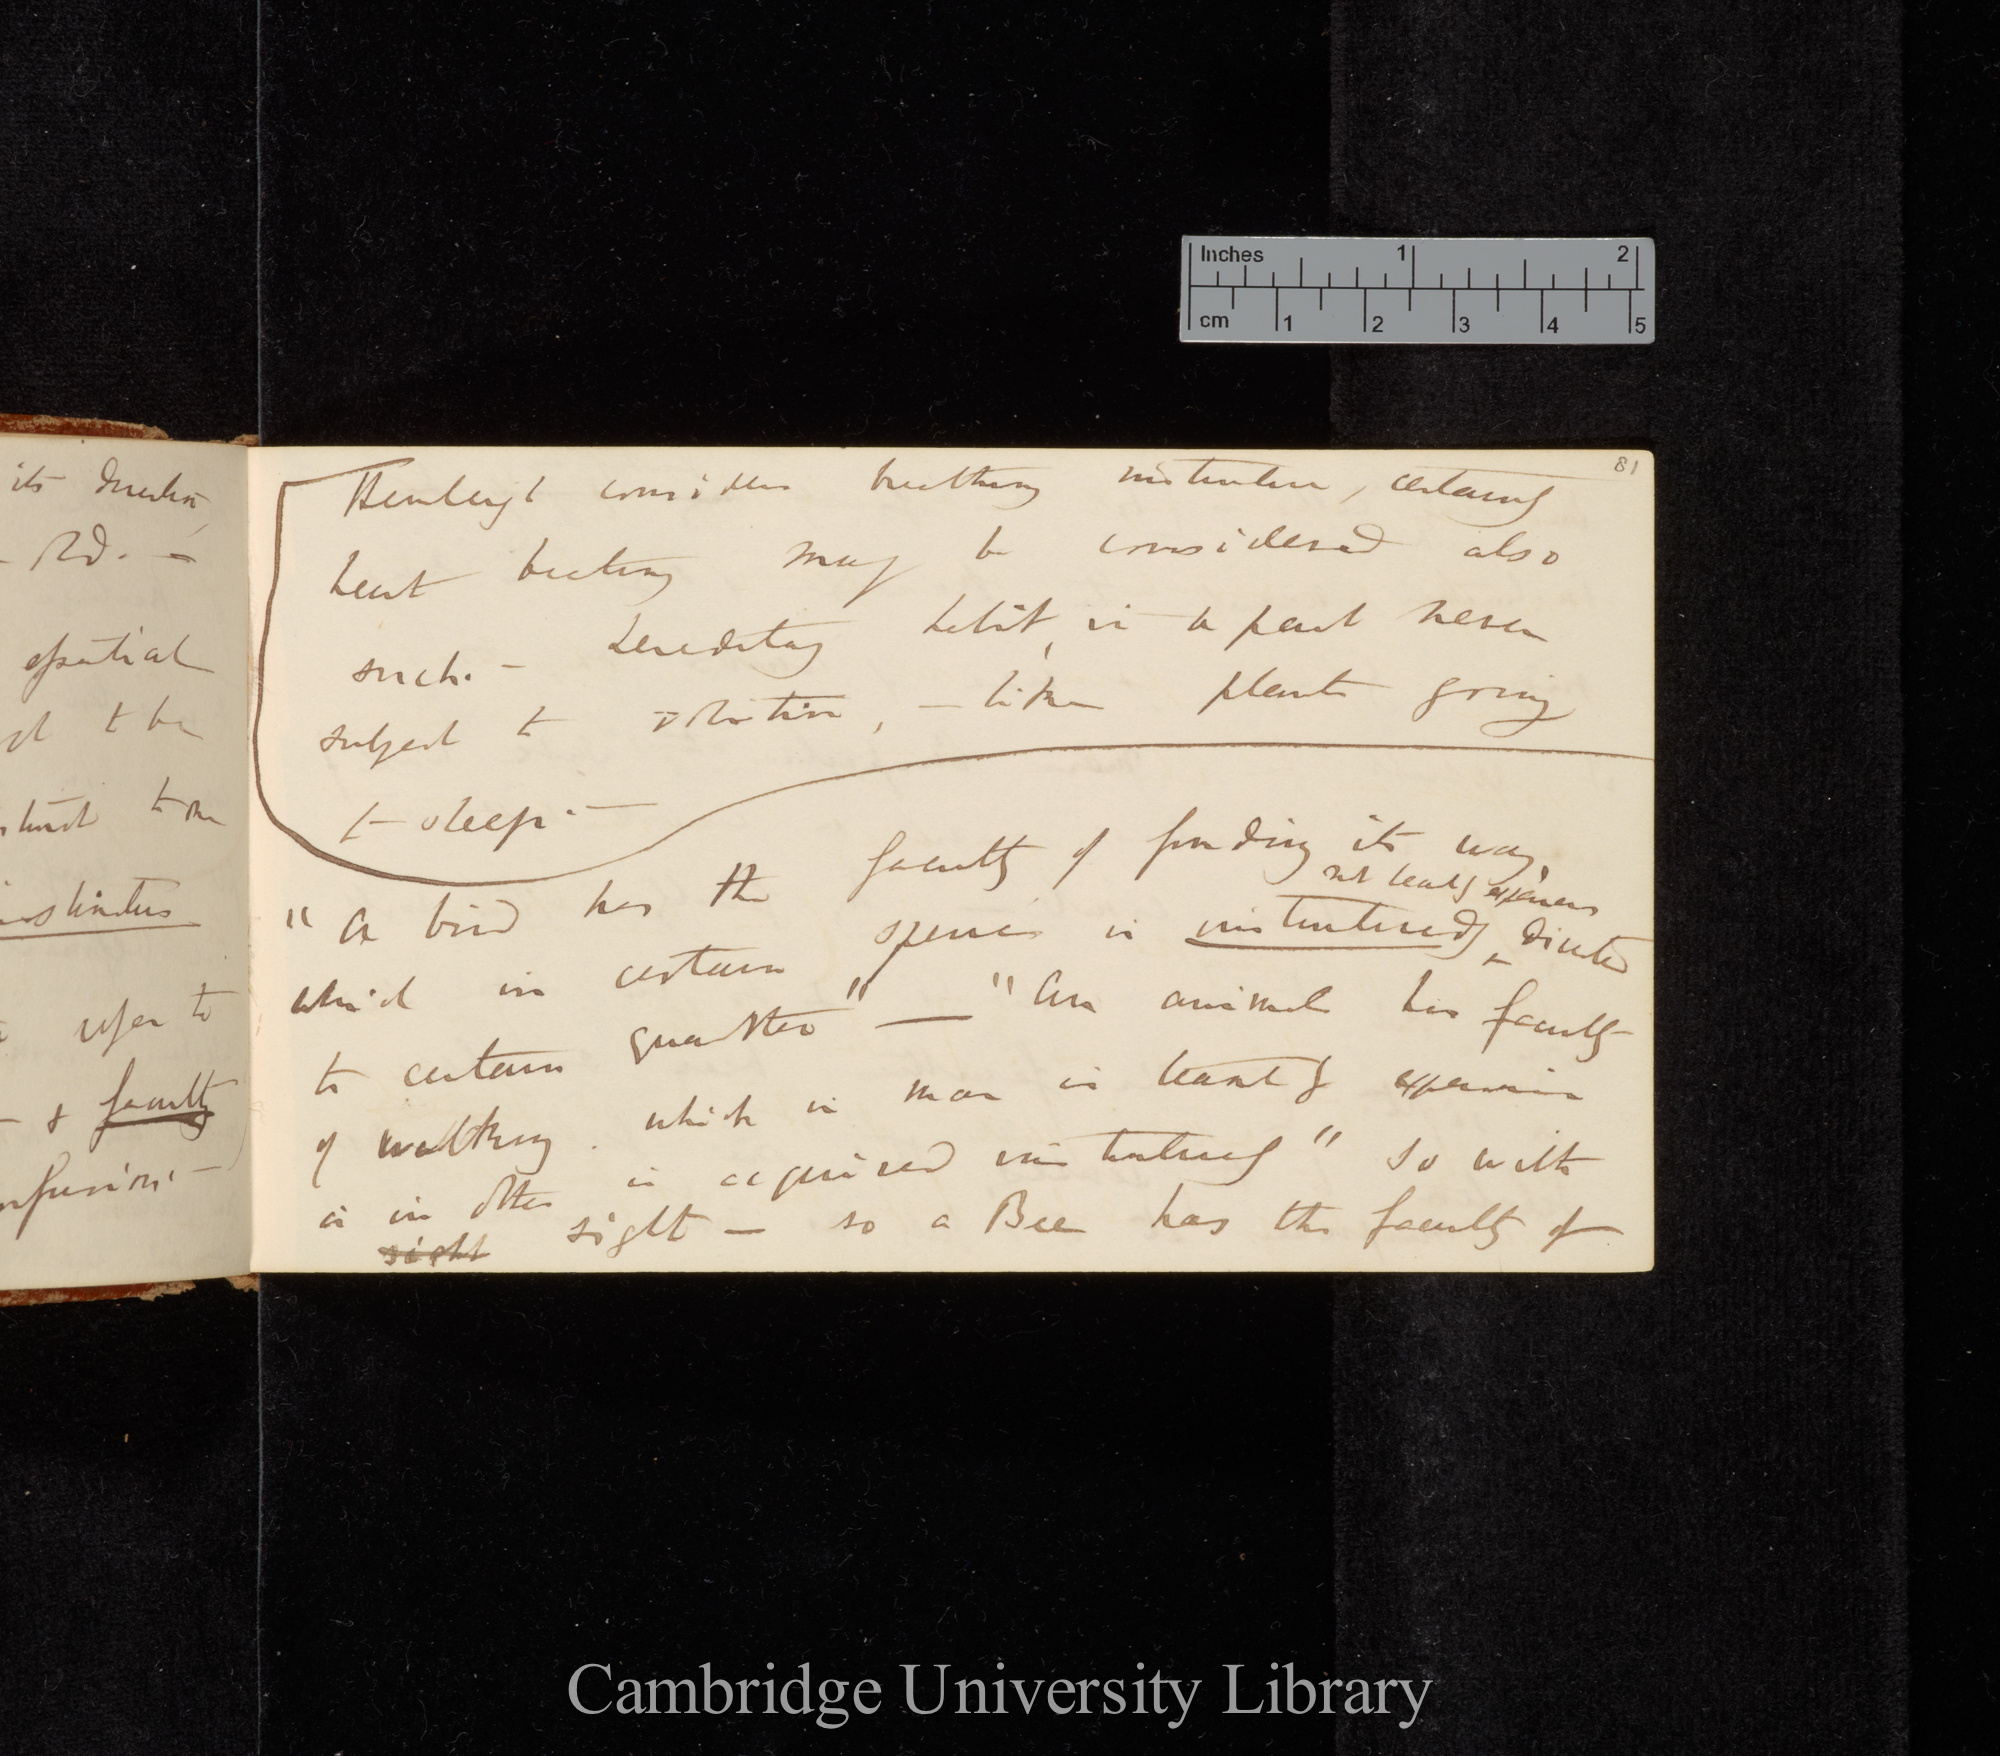 its direction
Rd. —
essential
to be
instinctive
refer to
— & faculty
confusion. —
81
Hensleigh considers breathing instinctive, certainly
heart beating may be considered also
such. — hereditary habit, in a part never
subject to volition, — like plants going
to sleep. —
"A bird has the faculty of finding its way,
not learnt by experience
which in certain species is instinctively directed
to certain quarter" — "An animal has faculty
of walking. which in man is learnt by experience
is in other is acquired instinctively" So with
sight sight — so a Bee has the faculty of
Inches 1 2
cm 1 2 3 4 5
Cambridge University Library